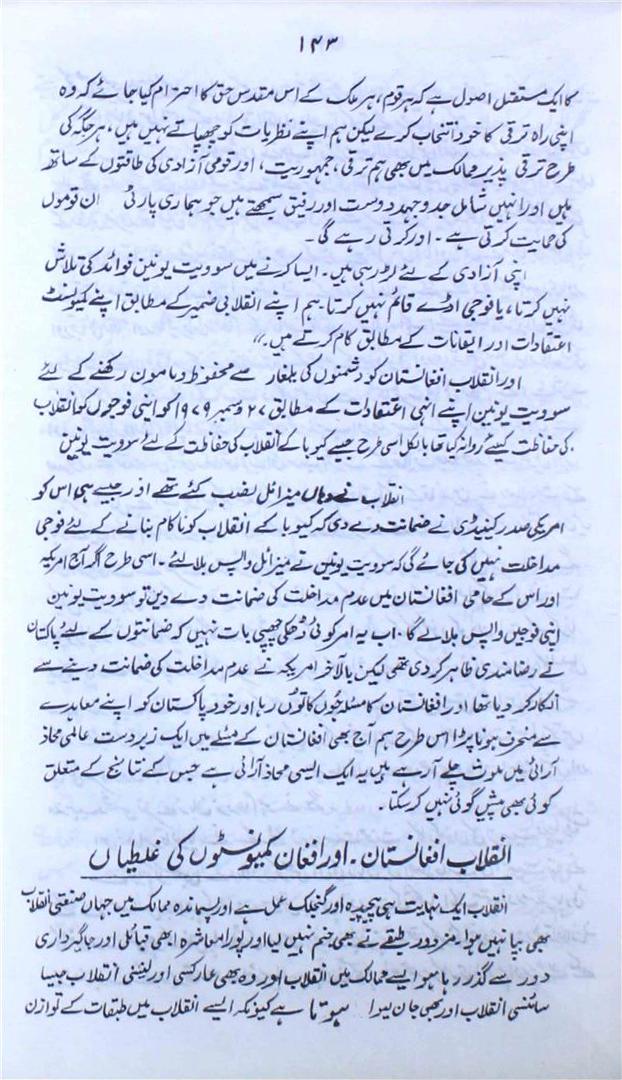 ۱۴۳
کا ایک مستقل اصول ہے کہ ہر قوم، ہر ملک کے اس مقدس حق کا احترام کیا جائے کہ وہ
اپنی راہ ترقی کا خود انتخاب کرے لیکن ہم اپنے نظریات کو چھپاتے نہیں ہیں، ہر جگہ کی
طرح ترقی پذیر ممالک میں بھی ہم ترقی، جمہوریت، اور قومی آزادی کی طاقتوں کے ساتھ
ہیں اور انہیں شامل جدوجہد دوست اور رفیق سمجھتے ہیں جو ہماری پارٹی ان قوموں
کی حمایت کرتی ہے۔ اور کرتی رہے گی۔
اپنی آزادی کے لئے لڑ رہی ہیں۔ ایسا کرنے میں سوویت یونین فوائد کی تلاش
نہیں کرتا، یا فوجی اڈے قائم نہیں کرتا۔ ہم اپنے انقلابی ضمیر کے مطابق اپنے کمیونسٹ
اعتقادات اور ایقانات کے مطابق کام کرتے ہیں۔"
اور انقلاب افغانستان کو دشمنوں کی یلغار سے محفوظ و مامون رکھنے کے لئے
سوویت یونین اپنے انہی اعتقادات کے مطابق ۲۷ دسمبر ۱۹۷۹ کو اپنی فوجوں کو انقلاب
کی حفاظت کیلئے روانہ کیا تھا بالکل اسی طرح جیسے کیوبا کے انقلاب کی حفاظت کے لئے سوویت یونین
انقلاب نے وہاں میزائل نصب کئے تھے اور جیسے ہی اس کو
امریکی صدر کنیڈی نے ضمانت دے دی کہ کیوبا کے انقلاب کو ناکام بنانے کے لئے فوجی
مداخلت نہیں کی جائے گی کہ سوویت یونین نے میزائل واپس بلا لئے۔ اسی طرح اگر آج امریکہ
اور اس کے حامی افغانستان میں عدم مداخلت کی ضمانت دے دیں تو سوویت یونین
اپنی فوجیں واپس بلا لے گا۔ اب یہ امر کوئی ڈھکی چھپی بات نہیں کہ ضمانتوں کے لئے پاکستان
نے رضامندی ظاہر کر دی تھی لیکن بالآخر امریکہ نے عدم مداخلت کی ضمانت دینے سے
انکار کر دیا تھا اور افغانستان کا مسئلہ جوں کا توں رہا اور خود پاکستان کو اپنے معاہدے
سے منحرف ہونا پڑا اس طرح ہم آج بھی افغانستان کے مسئلے میں ایک زبردست عالمی محاذ
آرائی میں ملوث چلے آ رہے ہیں یہ ایک ایسی محاذ آرائی ہے جس کے نتائج کے متعلق
کوئی بھی پیش گوئی نہیں کر سکتا۔
انقلاب افغانستان۔ اور افغان کمیونسٹوں کی غلطیاں
انقلاب ایک نہایت ہی پیچیدہ اور گنجلک عمل ہے اور پسماندہ ممالک میں جہاں صنعتی انقلاب
بھی بپا نہیں ہوا۔ مزدور طبقے نے بھی جنم نہیں لیا اور پورا معاشرہ ابھی قبائلی اور جاگیرداری
دور سے گذر رہا ہو ایسے ممالک میں انقلاب اور وہ بھی مارکسی اور لیننی انقلاب جیسا
سائنسی انقلاب اور بھی جان لیوا ہوتا ہے کیونکہ ایسے انقلاب میں طبقات کے توازن